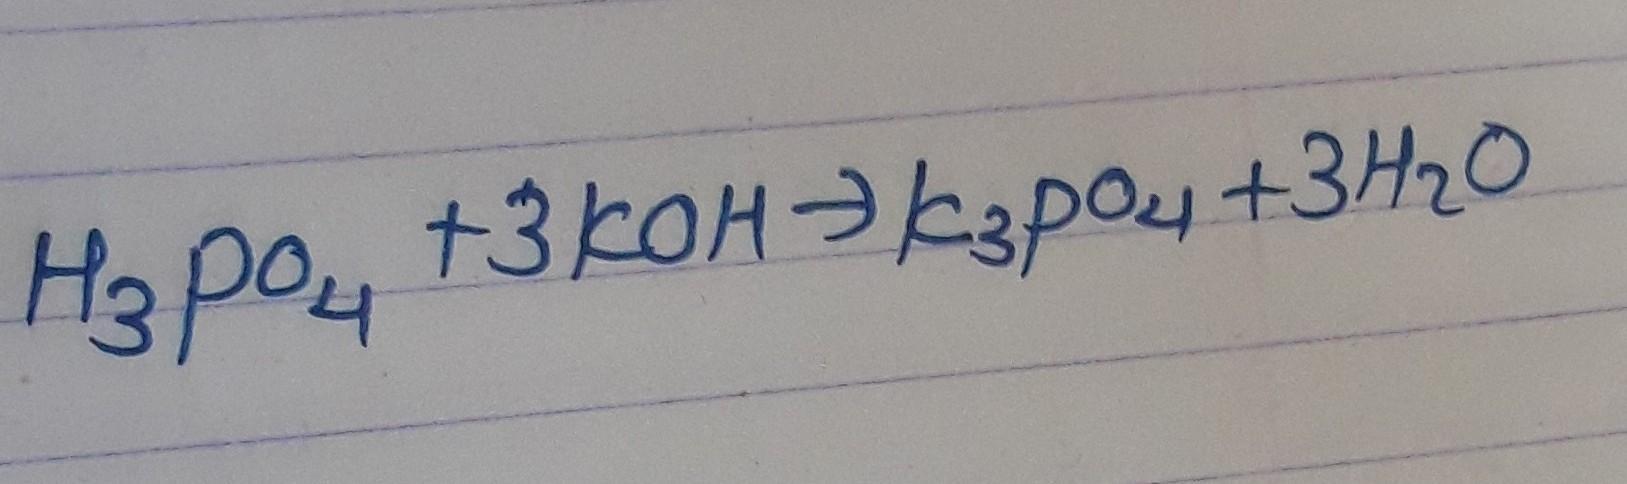 H₃PO₄ + 3KOH → K₃PO₄ + 3H₂O